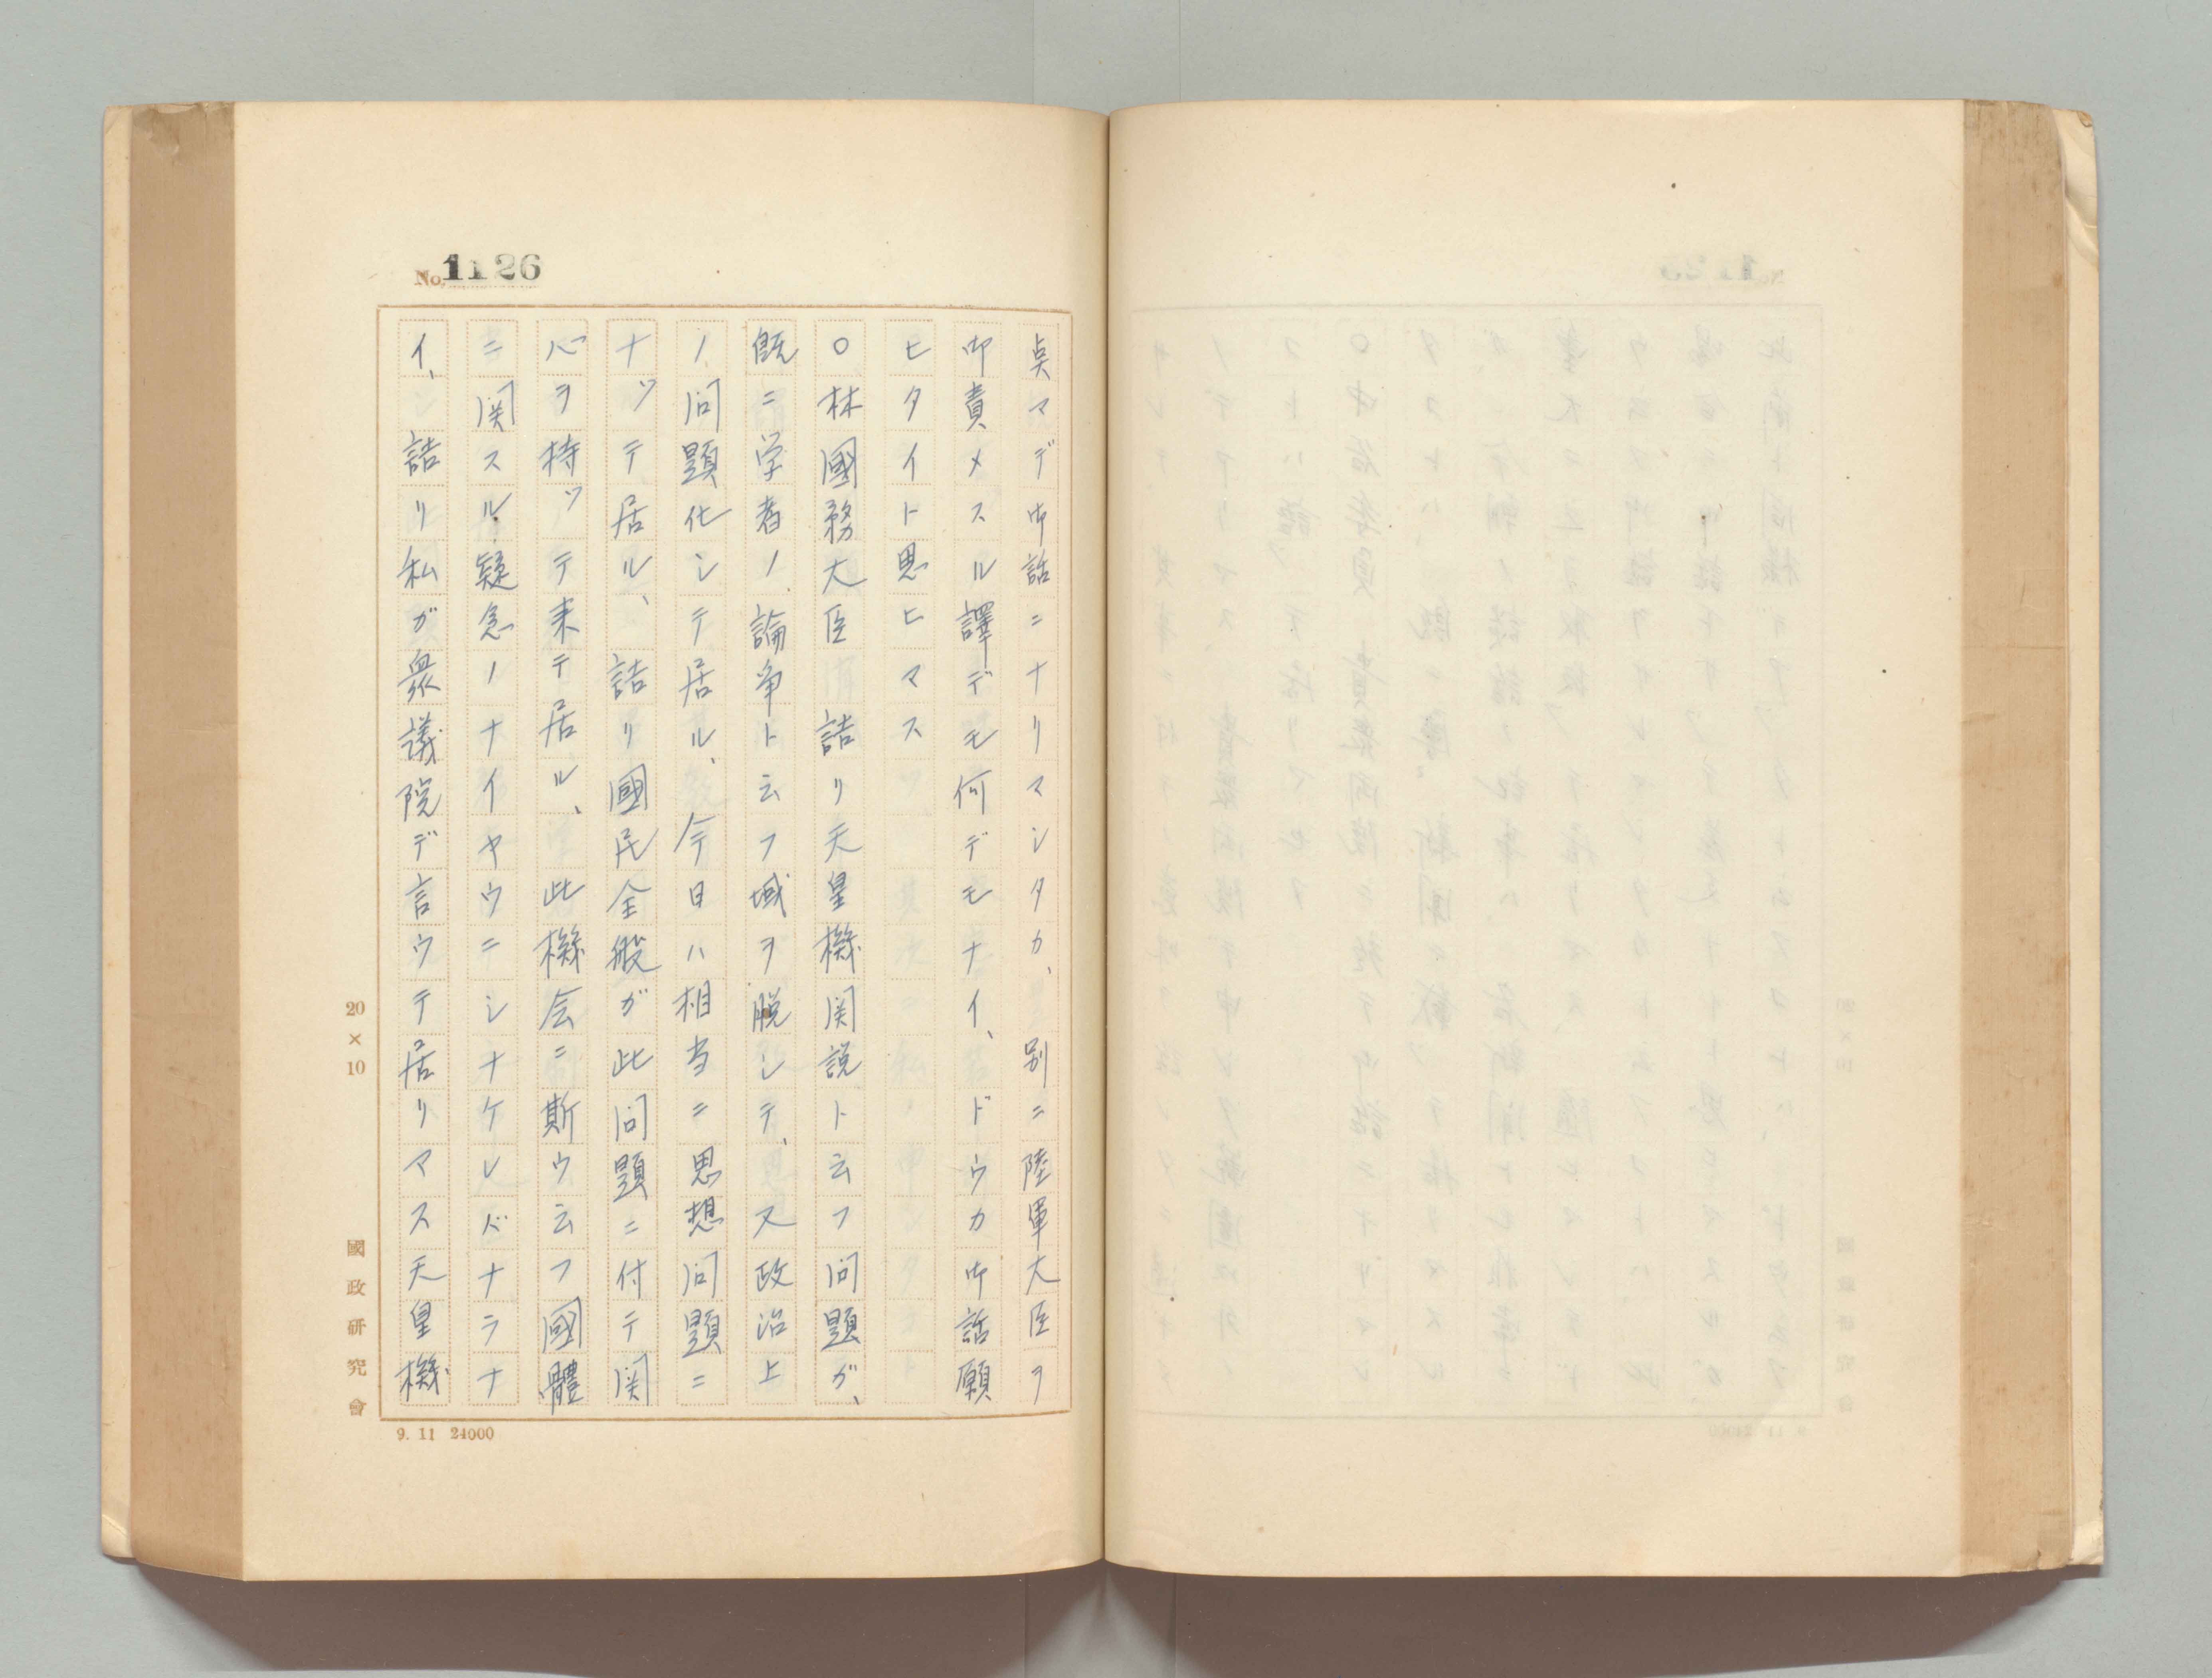 No. 1126
奌マデ御話ニナリマシタカ、別ニ陸軍大臣ヲ
御責メスル譯デモ何デモナイ、ドウカ御話願
ヒタイト思ヒマス
〇林國務大臣 詰リ天皇機関説ト云フ問題ガ、
既ニ学者ノ論争ト云フ域ヲ脱シテ、又政治上
ノ問題化シテ居ル、今日ハ相当ニ思想問題ニ
ナツテ居ル、詰リ國民全般ガ此問題ニ付テ関
心ヲ持ツテ来テ居ル、此機会ニ斯ウ云フ國體
ニ関スル疑念ノナイヤウニシナケレバナラナ
イ、詰リ私ガ衆議院デ言ウテ居リマス天皇機
20×10
國政研究會
9. 11 24000